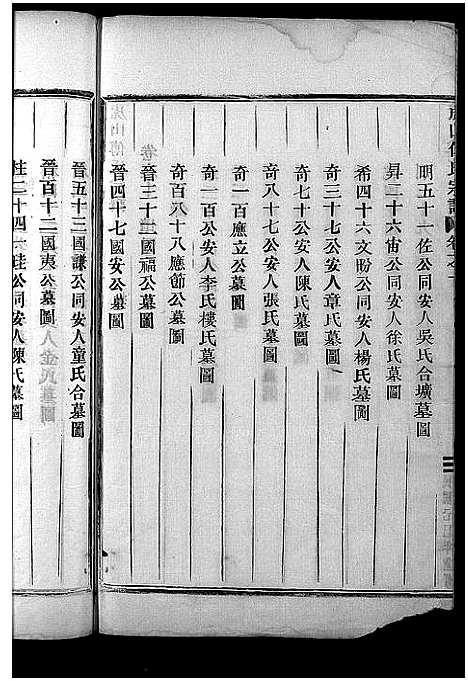 氏宗譜
明五十一佐公同安人吳氏合壙墓圖
昇二十六宙公同安人徐氏墓圖
希四十六文盼公同安人楊氏墓圖
奇三十七公安人章氏墓圖
奇七十公安人陳氏墓圖
奇八十七公安人張氏墓圖
奇一百應立公墓圖
奇一百公安人李氏樓氏墓圖
奇百八十八應節公墓圖
晉三十三國福公墓圖
晉四十七國安公墓圖
晉五十二國謙公同安人童氏合墓圖
晉百十二國夷公墓圖
桂二十四 公同安人陳氏墓圖